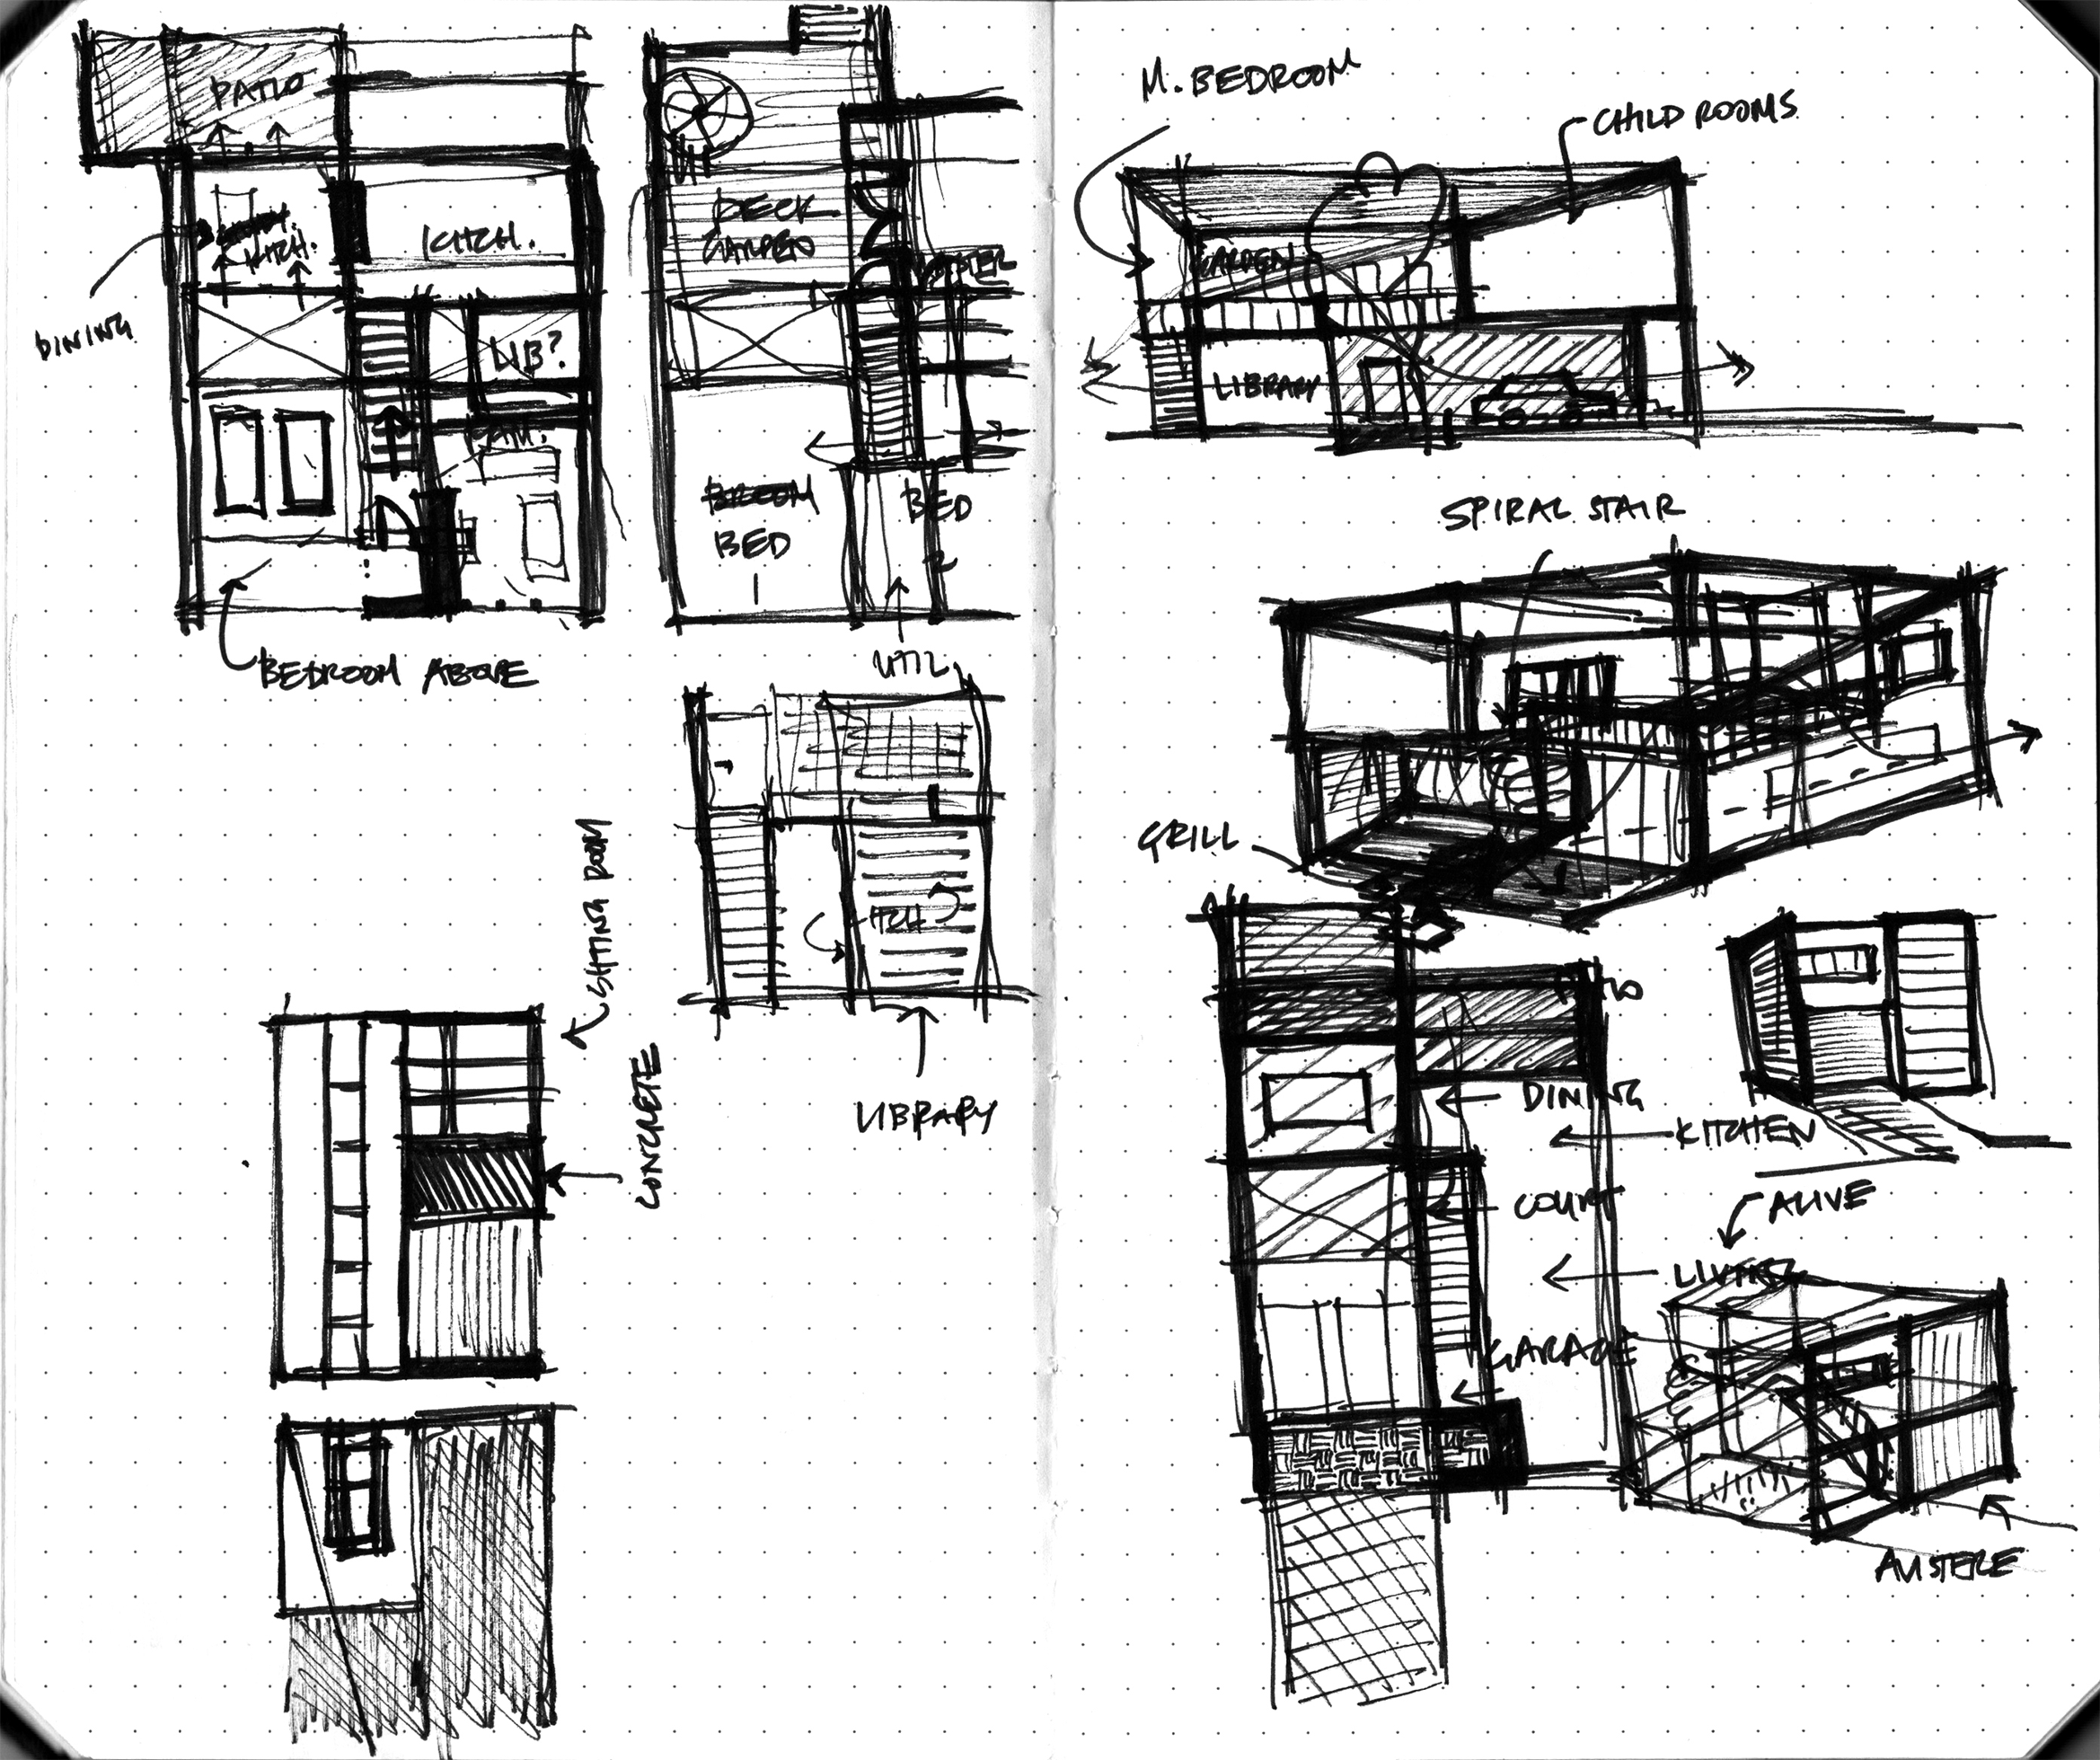 PATIO
KITCH.
KITCH.
DINING
LIB?
FAM.
BEDROOM ABOVE
DECK
GARDEN
MASTER
BROOM
BED
1
BED
2
UTIL.
KITCH
LIBRARY
SITTING ROOM
CONCRETE
M. BEDROOM
CHILD ROOMS
GARDEN
LIBRARY
SPIRAL STAIR
GRILL
PATIO
DINING
KITCHEN
COURT
ALIVE
LIVING
GARAGE
AUSTERE